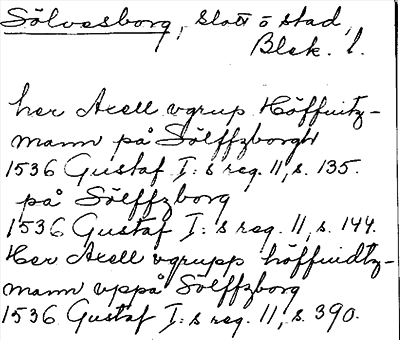 Sölvesborg, slott o stad,
Blek. l.
her Axell vgrup Höffuitz-
mann på Sölffzborgh
1536 Gustaf I:s reg. 11, s. 135.
på Sölffzborg
1536 Gustaf I:s reg. 11, s. 144.
Her Axell vgrupp höffuidtz-
mann vppå Sölffzborg
1536 Gustaf I:s reg. 11, s. 390.